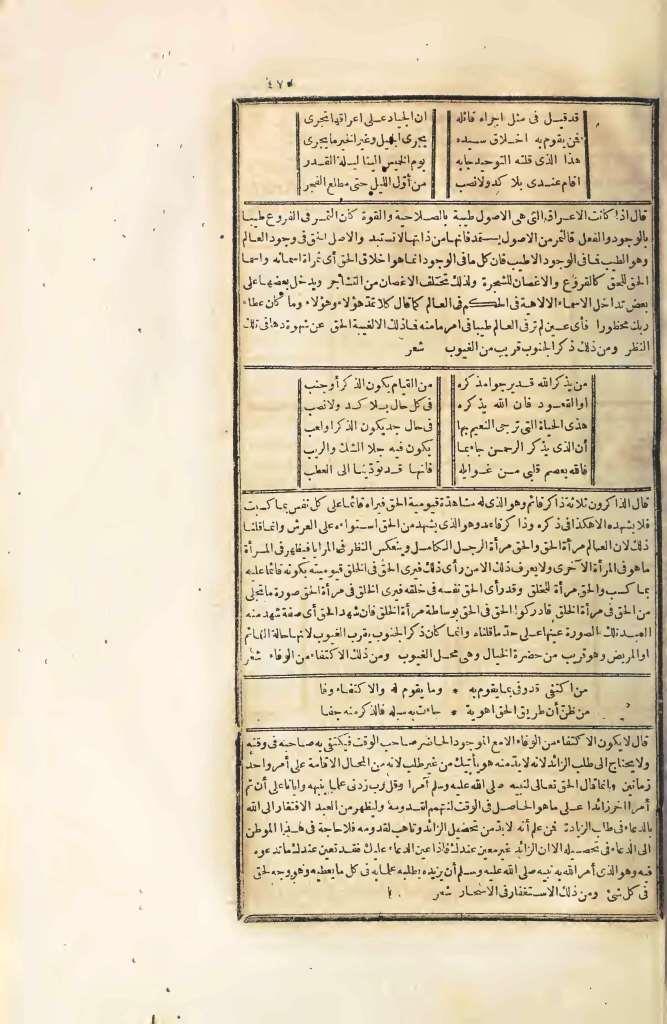 ٤٧٠
قد قيل فى مثل اجراه قائله ان الجياد على اعراقها تجرى
فمن يقوم به اخلاق سيده يجرى الجميل وغير الخير ما يجرى
هذا الذى قلته التوحيد جاء به يوم الخيس الينا ليلة القدر
اقام عندى بلا كد ولا نصب من أول الليل حتى مطلع الفجر
قال اذا كانت الاعراق التى هى الاصول طيبة بالصلاحية والقوة كان الثمر فى الفروع طيبا
بالوجود والفعل فالثمر من الاصول يستمد فانها من ذاتها لا تستبد والاصل الحق فى وجود العالم
وهو الطيب فما فى الوجود الا طيب فان كل ما فى الوجود انما هو اخلاق الحق أى ثمراة اسمائه واسما
الحق للحق كالفروع والاغصان للشجرة ولذلك تختلف الاغصان من التشاجر ويدخل بعضها على
بعض تداخل الاسماء الالاهية فى الحكم فى العالم كما قال كلا نمد هؤلاء وهؤلاء وما كان عطاء
ربك محظورا فأى عين لم تر فى العالم طيبا فى امر ما منه فذلك الالغيبة الحق عن شهودها فى تلك
النظر ومن ذلك ذكر الجنوب قريب من الغيوب شعر
من يذكر الله قد يرجو امذكره من القيام يكون الذكر أو جنب
او القعود فان الله يذكره فى كل حال بلا كد ولا نصب
هذى الحياة التى ترجى النعيم بها فى حال جد يكون الذكر او لعب
أن الذى يذكر الرحمن جاء بما يكون فيه جلا الشك والريب
فالله يعصم قلبى من غوايله فانها قد تؤدينا الى العطب
قال الذاكرون ثلاثة ذاكر قائم وهو الذى له مشاهدة قيومية الحق فيراه قائما على كل نفس بما كسبت
فلا يشهده الا هكذا فى ذكره وذاكر قاعد وهو الذى يشهد من الحق استواءه على العرش وانما قلنا
ذلك لان العالم مرأة الحق والحق مرأة الرجل الكامل وينعكس النظر فى المرايا فيظهر فى المرأة
ما هو فى المرأة الاخرى ولا يعرف ذلك الا من رأى ذلك فيرى الحق فى الخلق قيوميته بكونه قائما عليه
بما كسب والحق مرأة للخلق وقد رأى الحق نفسه فى خلقه فيرى الخلق فى مرأة الحق صورة ما تجلى
من الحق فى مرأة الخلق فادركوا الحق فى الحق بوساطة مرأة الخلق فان شهد الحق أى صفة شهد منه
العبد تلك الصورة عينها على حد ما قلناه وانما كان ذكر الجنوب بقرب الغيوب لانها حالة النائم
او المريض وهو قريب من حضرة الخيال وهى محل الغيوب ومن ذلك الاكتفاء من الوفاء شعر
من اكتفى قد وفى بما يقوم به * وما يقوم له والاكتفاء وفا
من ظن أن طريق الحق اهوية * جاءت به سبله فالذكر منه جفا
قال لا يكون الاكتفاء من الوفاء الا مع الموجود الحاضر صاحب الوقت فيكتفى به صاحبه فى وقته
ولا يحتاج الى طلب الزائد لانه لا بد منه هو يأتيك من غير طلب لانه من المحال الاقامة على أمر واحد
زمانين وانما قال الحق تعالى لنبيه صلى الله عليه وسلم آمرا وقل رب زدنى علما ينبهه وايانا على أن ثم
أمرا اخر زائدا على ما هو الحاصل فى الوقت لنتهمم لقدومه وليظهر من العبد الافتقار الى الله
بالدعاء فى طلب الزيادة فمن علم أنه لا بد من تحصيل الزائد وتاهب لقدومه فلا حاجة فى هذا الموطن
الى الدعاء فى تحصيله الا ان الزائد غير معين عندك فاذا عين الدعاء عليك فقد تعين عندك ما تدعوه
فيه وهو الذى أمر الله به نبيه صلى الله عليه وسلم أن يزيده بطلبه علما به فى كل ما يعطيه وهو وجه الحق
فى كل شئ ومن ذلك الاستغفار فى الاسحار شعر